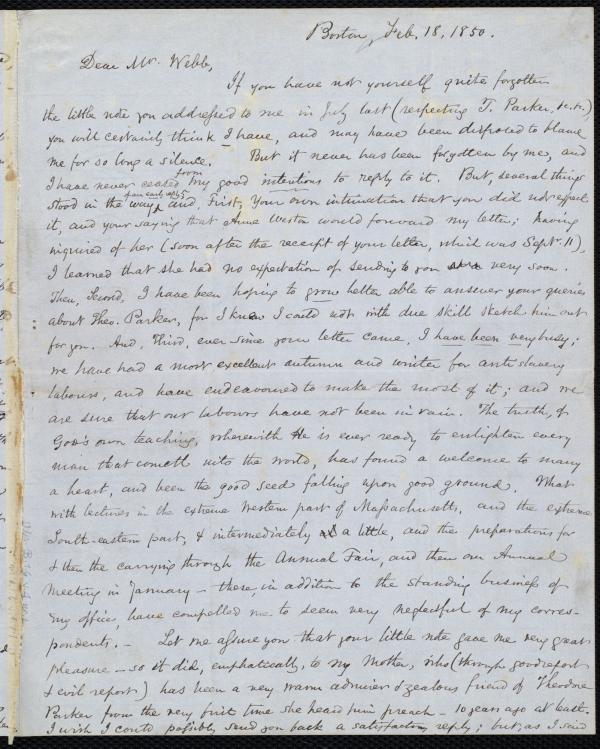 Boston, Feb. 18, 1850.
Dear Mr. Webb,
If you have not yourself quite forgotten
the little note you addressed to me in July last (respecting T. Parker, &c. &c.)
you will certainly think I have, and may have been disposed to blame
me for so long a silence. But it never has been forgotten by me, and
I have never ceased from my good intentions to reply to it. But several things
stood in the way of an early reply and, First, Your own intimation that you did not expect
it, and your saying that Anne Weston would forward my letter; having
inquired of her (soon after the receipt of your letter, which was Sept. 11),
I learned that she had no expectation of sending to you very soon.
Then, Second, I have been hoping to grow better able to answer your queries
about Theo. Parker, for I knew I could not with due skill sketch him out
for you. And, Third, ever since your letter came, I have been very busy;
we have had a most excellent autumn and winter for antislavery
labours, and have endeavoured to make the most of it; and we
are sure that our labours have not been in vain. The truth, of
God's own teaching, wherewith He is ever ready to enlighten every
man that cometh into the world, has found a welcome to many
a heart, and been the good seed falling upon good ground. What
with lectures in the extreme Western part of Massachusetts, and the extreme
South-eastern part, & intermediately a little, and the preparations for
& then the carrying through the Annual Fair, and then our Annual
Meeting in January – these, in addition to the standing business of
my office, have compelled me to seem very neglectful of my corres-
pondents. – Let me assure you that your little note gave me very great
pleasure – so it did, emphatically, to my Mother, who (through good report
& evil report) has been a very warm admirer & zealous friend of Theodore
Parker from the very first time she heard him preach – 10 years ago at least.
I wish I could possibly send you back a satisfactory reply; but, as I said